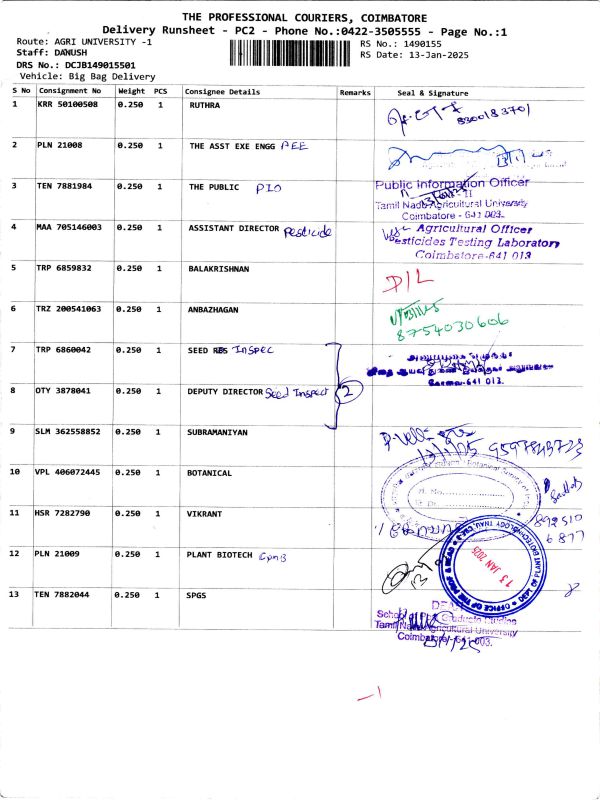 THE PROFESSIONAL COURIERS, COIMBATORE
Delivery Runsheet - PC2 - Phone No.:0422-3505555 - Page No.:1
Route: AGRI UNIVERSITY -1
RS No.: 1490155
Staff: DANUSH
RS Date: 13-Jan-2025
DRS No.: DCJB149015501
Vehicle: Big Bag Delivery
S No Consignment No Weight PCS Consignee Details Remarks Seal & Signature
1 KRR 50100508 0.250 1 RUTHRA
8300183701
2 PLN 21008 0.250 1 THE ASST EXE ENGG AEE
3 TEN 7881984 0.250 1 THE PUBLIC PIO
Public Information Officer
Tamil Nadu Agricultural University
Coimbatore - 641 003.
4 MAA 705146003 0.250 1 ASSISTANT DIRECTOR Pesticide
Agricultural Officer
Pesticides Testing Laboratory
Coimbatore-641 013
5 TRP 6859832 0.250 1 BALAKRISHNAN
D/L
6 TRZ 200541063 0.250 1 ANBAZHAGAN
8754030606
7 TRP 6860042 0.250 1 SEED Inspec
கோவை-641 013.
8 OTY 3878041 0.250 1 DEPUTY DIRECTOR Seed Inspect 2
9 SLM 362558852 0.250 1 SUBRAMANIYAN
13/1/25 9597845723
10 VPL 406072445 0.250 1 BOTANICAL
11 HSR 7282790 0.250 1 VIKRANT
892510
6877
12 PLN 21009 0.250 1 PLANT BIOTECH CPMB
13 JAN 2025
13 TEN 7882044 0.250 1 SPGS
DEAN
School of Post Graduate Studies
Tamil Nadu Agricultural University
Coimbatore - 641 003.
-1